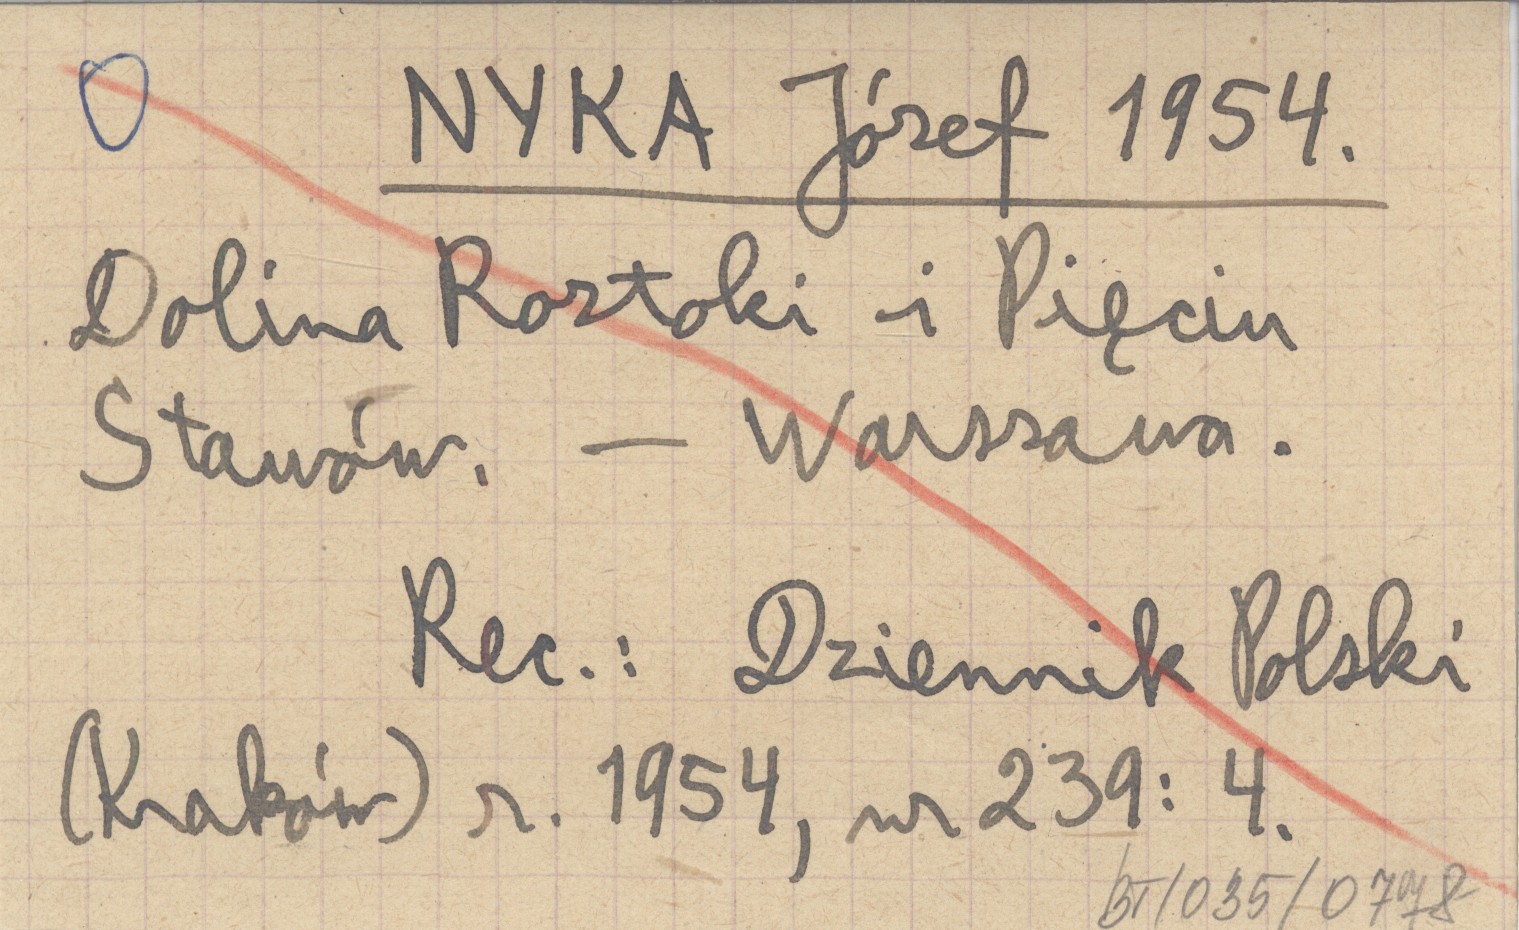 NYKA Józef 1954.
Dolina Roztoki i Pięciu
Stawów. — Warszawa.
Rec.: Dziennik Polski
(Kraków) r. 1954, nr 239: 4.
BT/035/0778